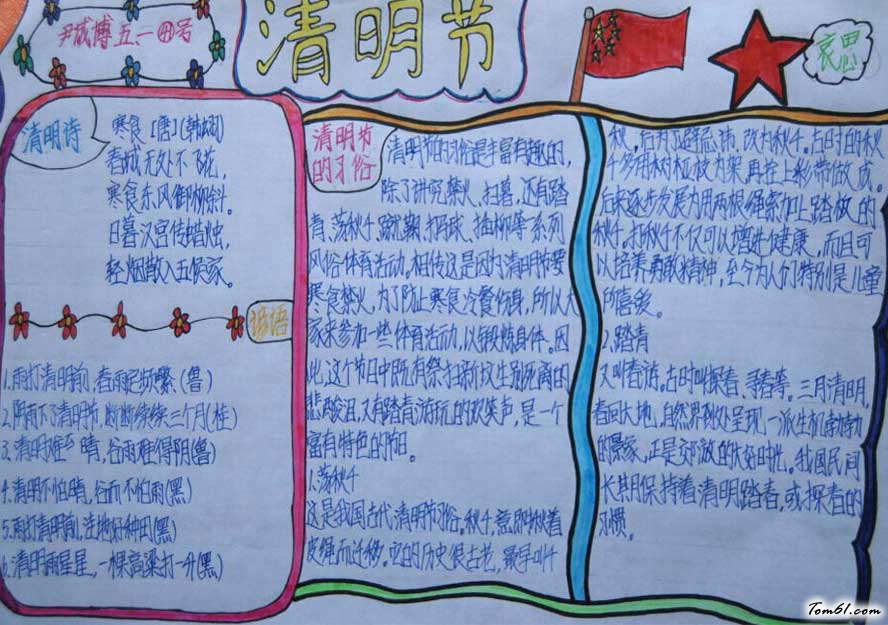 尹成博五、一 ㊃号
清明节
哀思
清明诗
寒食 [唐](韩翃)
春城无处不飞花,
寒食东风御柳斜。
日暮汉宫传蜡烛,
轻烟散入五侯家。
谚语
1.雨打清明前,春雨定频繁.(鲁)
2.阴雨下了清明节,断断续续三个月(桂)
3.清明难得晴,谷雨难得阴(鲁)
4.清明不怕晴,谷雨不怕雨(黑)
5.雨打清明前,洼地好种田(黑)
6.清明雨星星,一棵高粱打一升(黑)
清明节
的习俗
清明节的习俗是丰富有趣的,
除了讲究禁火、扫墓,还有踏
青、荡秋千、蹴鞠、打马球、插柳等系列
风俗体育活动。相传这是因为清明节要
寒食禁火,为了防止寒食冷餐伤身,所以大
家来参加一些体育活动,以锻炼身体。因
此,这个节日中既有祭扫新坟生别死离的
悲酸泪,又有踏青游玩的欢笑声,是一个
富有特色的节日。
1.荡秋千
这是我国古代清明节习俗。秋千,意即揪着
皮绳而迁移。它的历史很古老,最早叫千
秋,后为了避忌讳,改为秋千。古时的秋
千多用树桠枝为架,再栓上彩带做成。
后来逐步发展为用两根绳索加上踏板的
秋千。打秋千不仅可以增进健康,而且可
以培养勇敢精神,至今为人们特别是儿童
所喜爱。
2.踏青
又叫春游,古时叫探春、寻春等。三月清明,
春回大地,自然界到处呈现一派生机勃勃
的景象,正是郊游的大好时光。我国民间
长期保持着清明踏春,或探春的
习惯。
Tom61.com